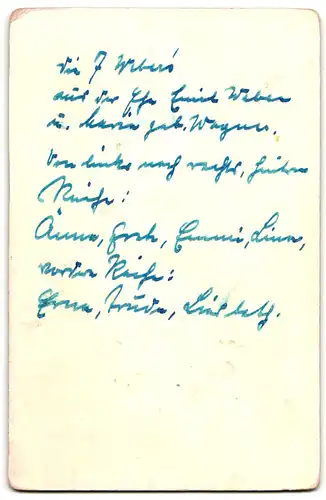 die 7 Weber's
aus der Ehe Emil Weber
u. Maria geb. Wagner.
Von links nach rechts, hintere
Reihe:
Änne, Grete, Emmi, Lina,
vordere Reihe:
Erna, Trude, Liesbeth.